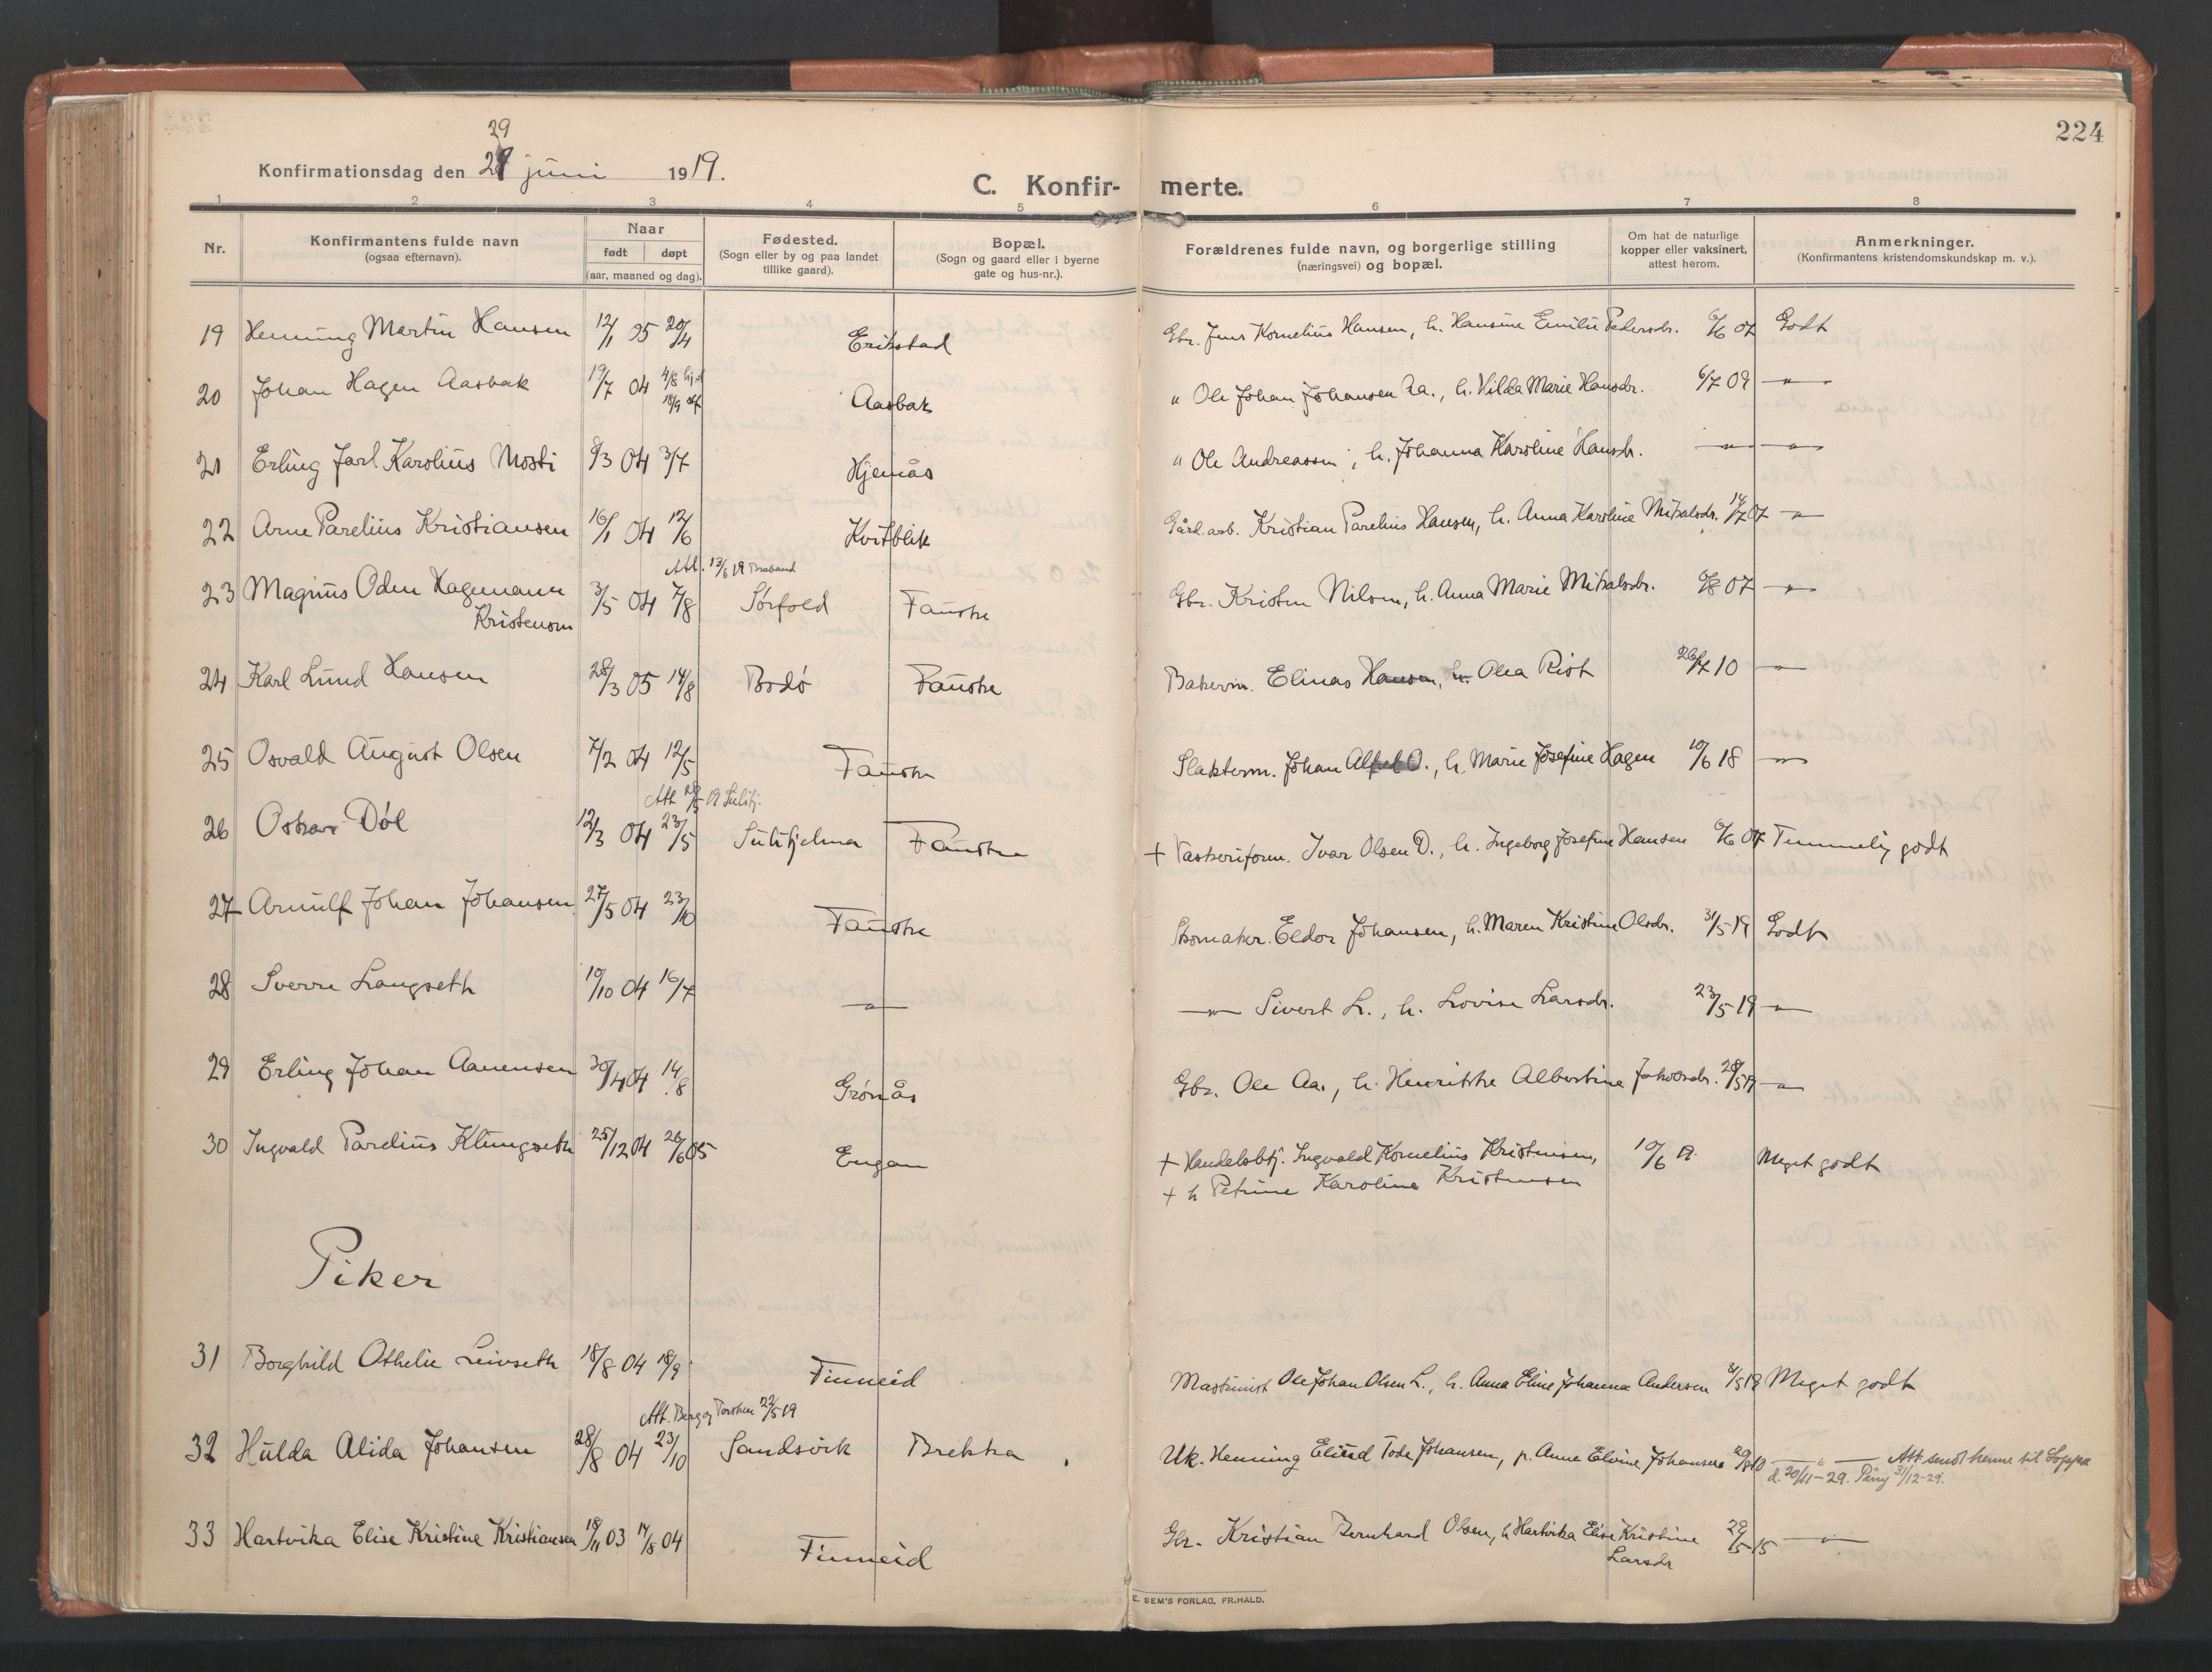 224
29
Konfirmationsdag den 29 juni 1919.
C. Konfir- merte.
1 2 3 4 5 6 7 8
Nr.
Konfirmantens fulde navn
(ogsaa efternavn).
Naar
født døpt
(aar, maaned og dag).
Fødested.
(Sogn eller by og paa landet
tillike gaard).
Bopæl.
(Sogn og gaard eller i byerne
gate og hus-nr.).
Forældrenes fulde navn, og borgerlige stilling
(næringsvei) og bopæl.
Om hat de naturlige
kopper eller vaksinert,
attest herom.
Anmerkninger.
(Konfirmantens kristendomskundskap m. v.).
19 Henning Martin Hansen 12/1 05 20/4 Erikstad Gbr. Jens Kornelius Hansen, h. Hansine Emilie Pedersdr. 6/6 07 Godt
20 Johan Hagen Aasbak 19/7 04 4/8 hjd 18/9 stf Aasbak " Ole Johan Johansen Aa., h. Vilda Marie Hansdr. 6/7 09 —"—
21 Erling Jarl Karolius Mosti 8/3 04 3/7 Hjemås " Ole Andreassen, h. Johanna Karoline Hansdr. —"— —"—
22 Arne Parelius Kristiansen 16/1 04 12/6 Kvitblik Gård.arb. Kristian Parelius Hansen, h. Anna Karoline Mikalsdr. 14/7 07 —"—
Att. 13/6 19
23 Magnus Oden Hagemann 3/5 04 7/8 Sørfold Fauske Gbr. Kristen Nilsen, h. Anna Marie Mikalsdr. 6/8 07 —"—
Kristensen
24 Karl Lund Hansen 28/3 05 14/8 Bodø Fauske Bakerm. Elinas Hansen, h. Olea Rist 26/7 10 —"—
25 Osvald August Olsen 7/2 04 12/5 Fauske Slakterm. Johan Alfred O., h. Marie Josefine Hagen 10/6 18 —"—
Att 28/5 19 Sulitj.
26 Oskar Døl 12/3 04 23/5 Sulitjelma Fauske + Vaskeriform. Ivar Olsen D., h. Ingeborg Josefine Hansen 6/6 07 Temmelig godt
27 Arnulf Johan Johansen 27/5 04 23/10 Fauske Skomaker. Eldor Johansen, h. Maren Kristine Olsdr. 31/5 19 Godt
28 Sverre Langseth 19/10 04 16/7 —"— —"— Sivert L., h. Lovise Larsdr. 23/5 19 —"—
29 Erling Johan Aanensen 30/4 04 14/8 Grønås Gbr. Ole Aa., h. Henrikke Albertine Jakobsdr. 28/5 19 —"—
30 Ingvald Parelius Klungseth 25/12 04 26/6 05 Engan + Handelsbtj. Ingvald Kornelius Kristensen, 10/6 19. Meget godt
+ h Petrine Karoline Kristensen
Piker
31 Borghild Othelie Leivseth 18/8 04 18/9 Finneid Maskinist Ole Johan Olsen L., h. Anna Eline Johanna Andersen 31/5 19 Meget godt
Att. Berg og Torsken 22/5 19
32 Hulda Alida Johansen 28/8 04 23/10 Sandsvik Brekka Uk. Henning Elind Tode Johansen, p. Anna Elvine Johansen 20/8 10 —"— Att sendt henne til Loppa
d. 20/11-29. Påny 31/12-29.
33 Hartvika Elise Kristine Kristiansen 18/11 03 14/8 04 Finneid Gbr. Kristian Bernhard Olsen, h Hartvika Elise Kristine 29/5 15 —"—
Larsdr
E. SEM'S FORLAG, FR.HALD.